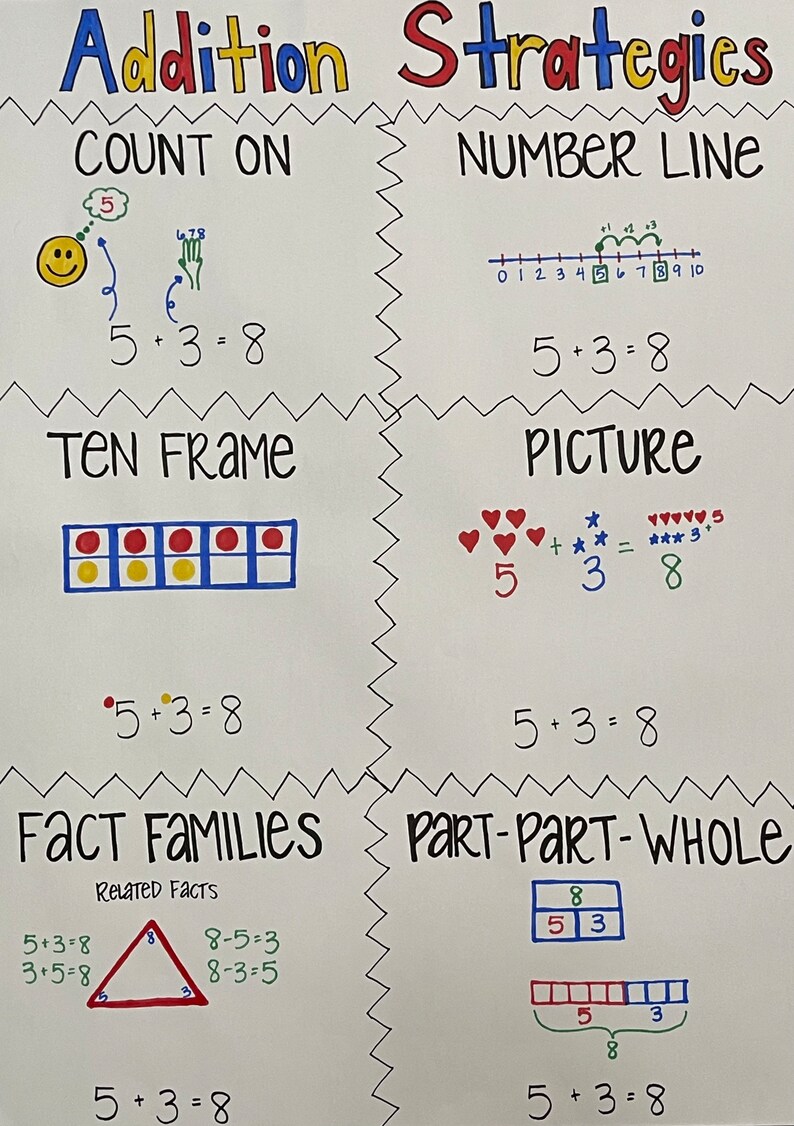 Addition Strategies
COUNT ON
5
678
5 + 3 = 8
NUMBER LINE
+1 +2 +3
0 1 2 3 4 5 6 7 8 9 10
5 + 3 = 8
TEN FRAME
5 + 3 = 8
PICTURE
5
+ = 3 +
5 3 8
5 + 3 = 8
FACT FAMILIES
RELATED FACTS
5+3=8 8 8-5=3
3+5=8 5 3 8-3=5
5 + 3 = 8
PART-PART-WHOLE
8
5 3
5 3
8
5 + 3 = 8